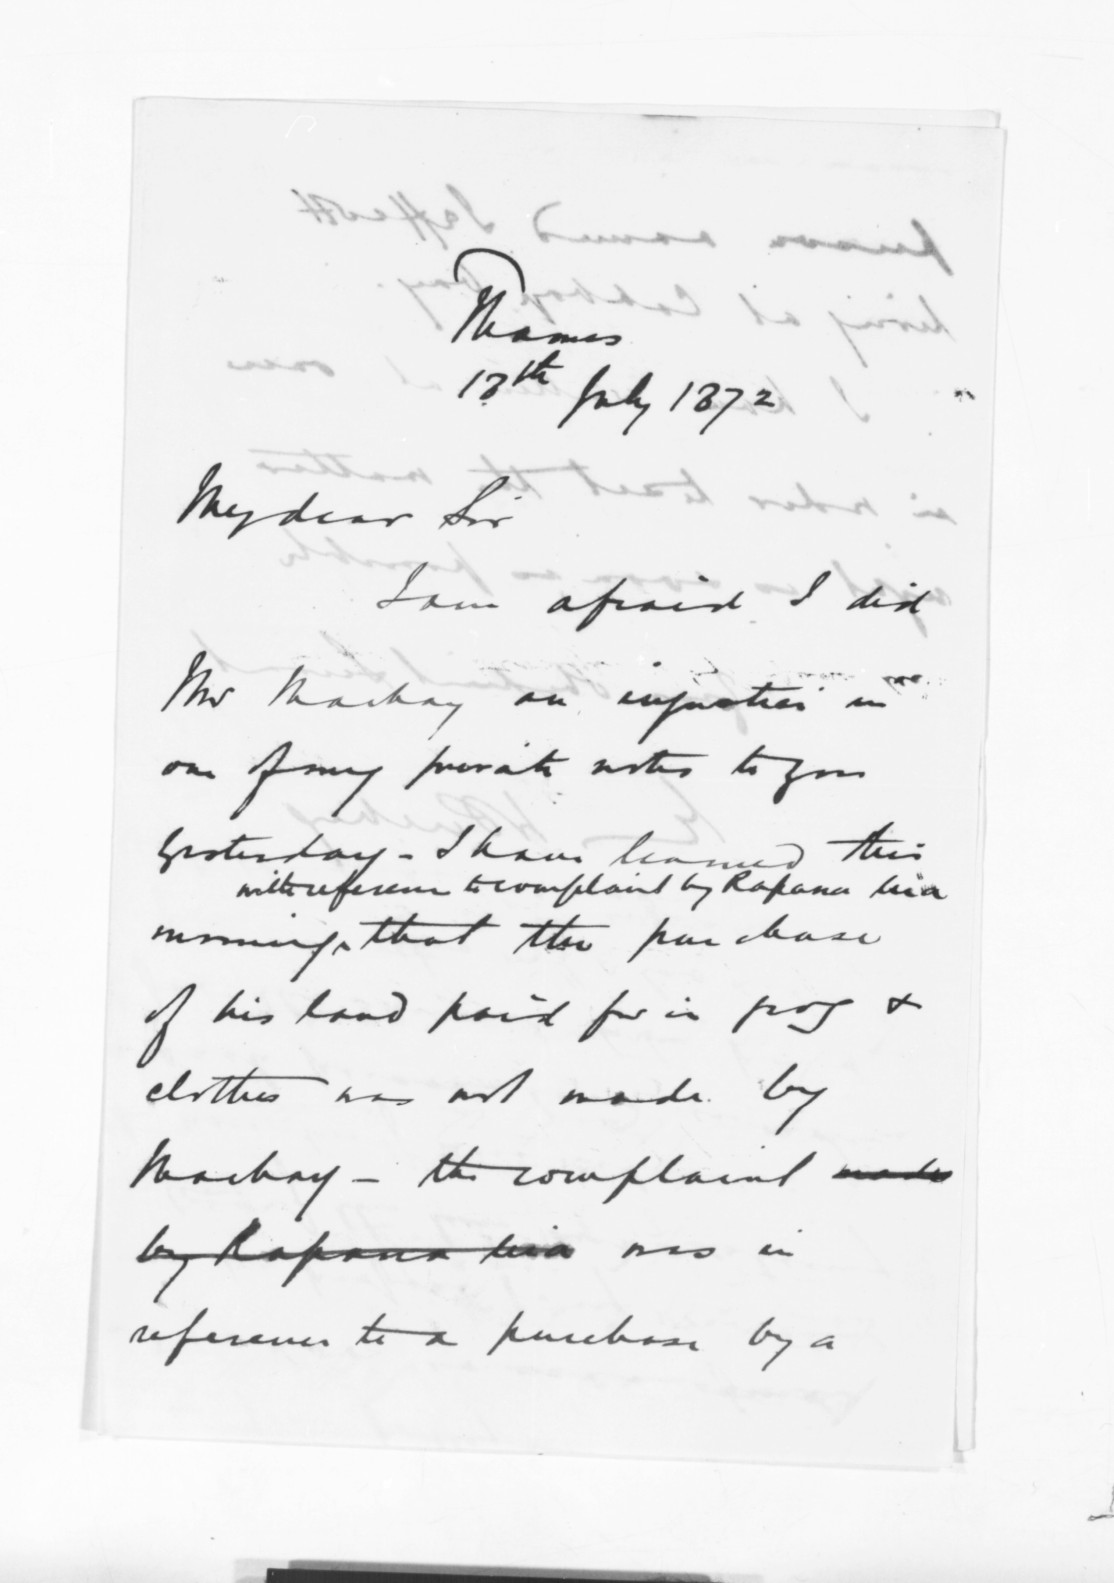 Thames
18th July 1872
My dear Sir
I am afraid I did
Mr Mackay an injustice in
one of my private notes to you
yesterday - I have learned this
with reference to complaint by Rapana
morning, that the purchase
of his land paid for in grog &
clothes was not made by
Mackay - the complaint made
by Rapana was in
reference to a purchase by a